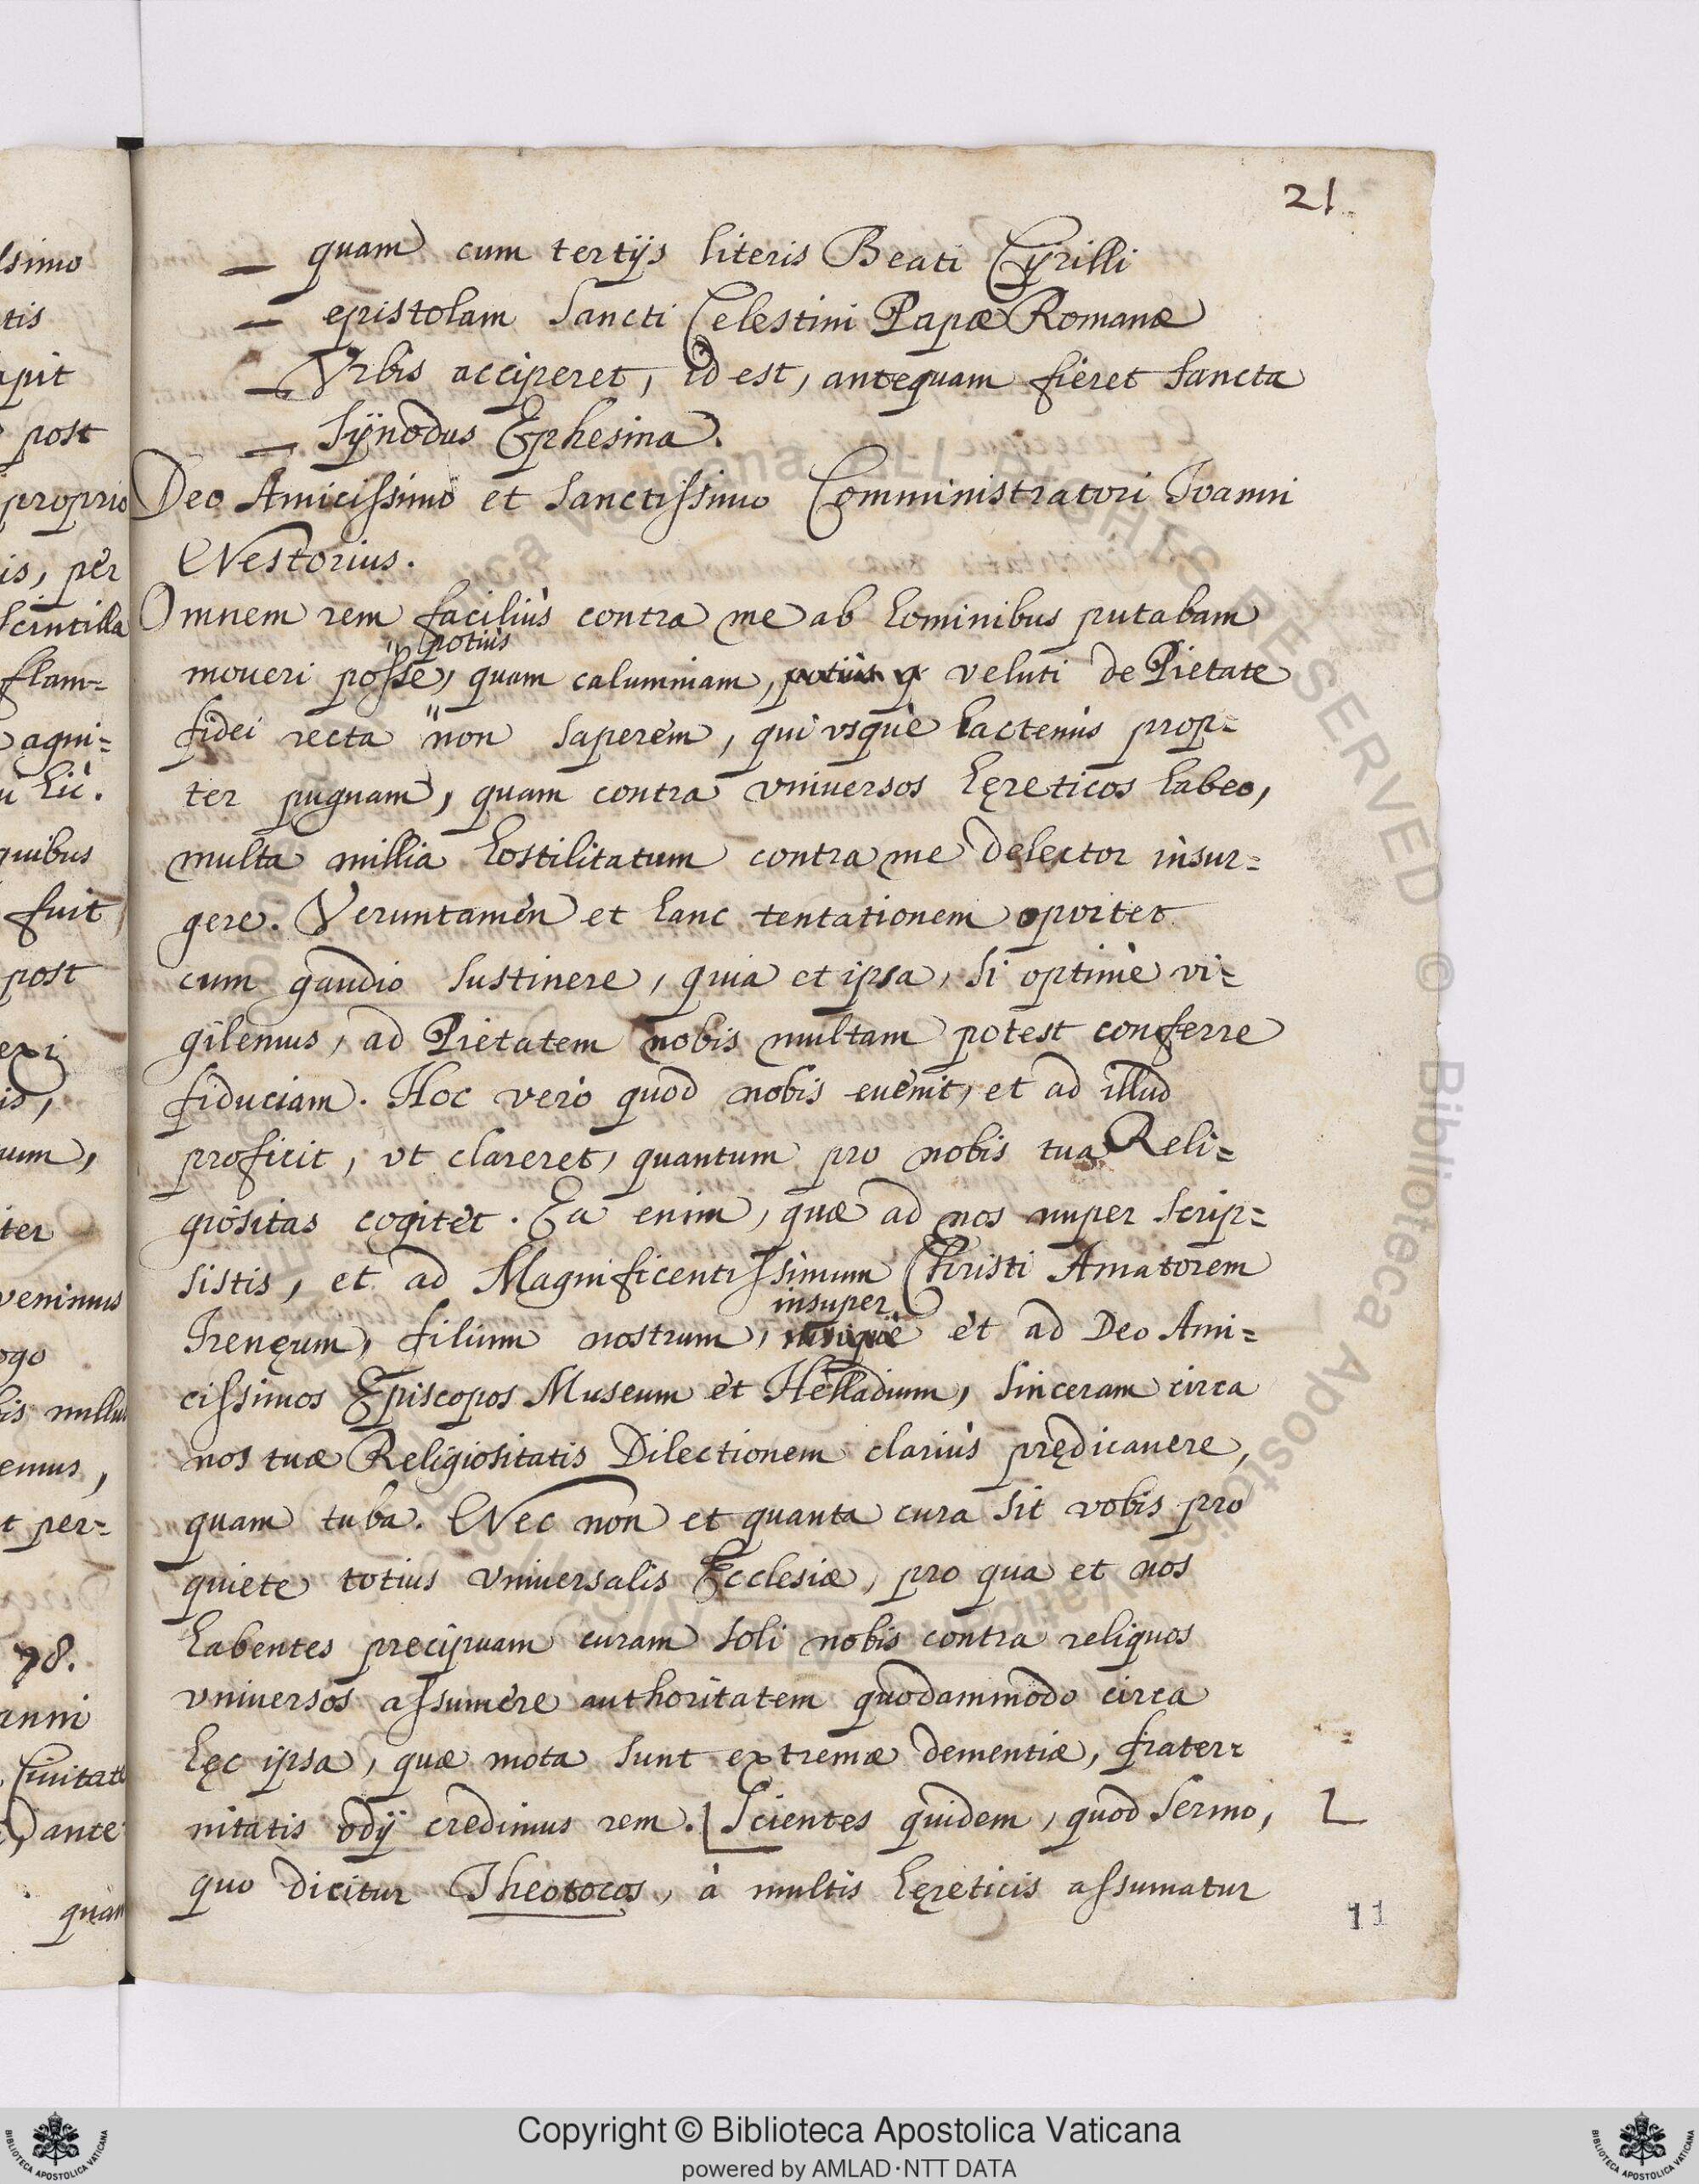 21
quam cum tertijs literis Beati Cyrilli
epistolam Sancti Celestini Papæ Romanæ
Vrbis acciperet, id est, antequam fieret Sancta
Synodus Ephesina.
Deo Amicissimo et Sanctissimo Comministratori Ioanni
Nestorius.
Omnem rem faciliùs contra me ab hominibus putabam
potiùs
moueri posse, quam calumniam, potiùs q veluti de Pietate
fidei recta non saperem, qui vsque hactenùs prop=
ter pugnam, quam contra vniuersos hęreticos habeo,
multa millia hostilitatum contra me delector insur=
gere. Veruntamen et hanc tentationem oportet
cum gaudio sustinere, quia et ipsa, si optimè vi=
gilemus, ad Pietatem nobis multam potest conferre
fiduciam. Hoc verò quod nobis euenit, et ad illud
proficit, vt clareret, quantum pro nobis tua Reli=
giositas cogitet. Ea enim, quæ ad nos nuper scrip=
sistis, et ad Magnificentissimum Christi Amatorem
insuper
Irenęum, filium nostrum, et ad Deo Ami=
cissimos Episcopos Museum et Helladium, sinceram circa
nos tuæ Religiositatis Dilectionem clariùs prędicauere,
quam tuba. Nec non et quanta cura sit vobis pro
quiete totius vniuersalis Ecclesiæ, pro qua et nos
habentes precipuam curam soli nobis contra reliquos
vniuersos assumere authoritatem quodammodo circa
hęc ipsa, quæ mota sunt extremæ dementiæ, frater=
nitatis odij credimus rem. Scientes quidem, quod sermo,
quo dicitur Theotocos, à multis hęreticis assumatur
11
ssimo
tis
apit
post
proprio
is, per
scintilla
flam=
agni=
hìc.
quibus
fuit
post
is,
uum,
iter
veninus
ogo
bis nullu
emus,
t per=
78.
anni
Ciuitate
ante
quam
Copyright © Biblioteca Apostolica Vaticana
powered by AMLAD·NTT DATA
BIBLIOTECA APOSTOLICA VATICANA
BIBLIOTECA APOSTOLICA VATICANA